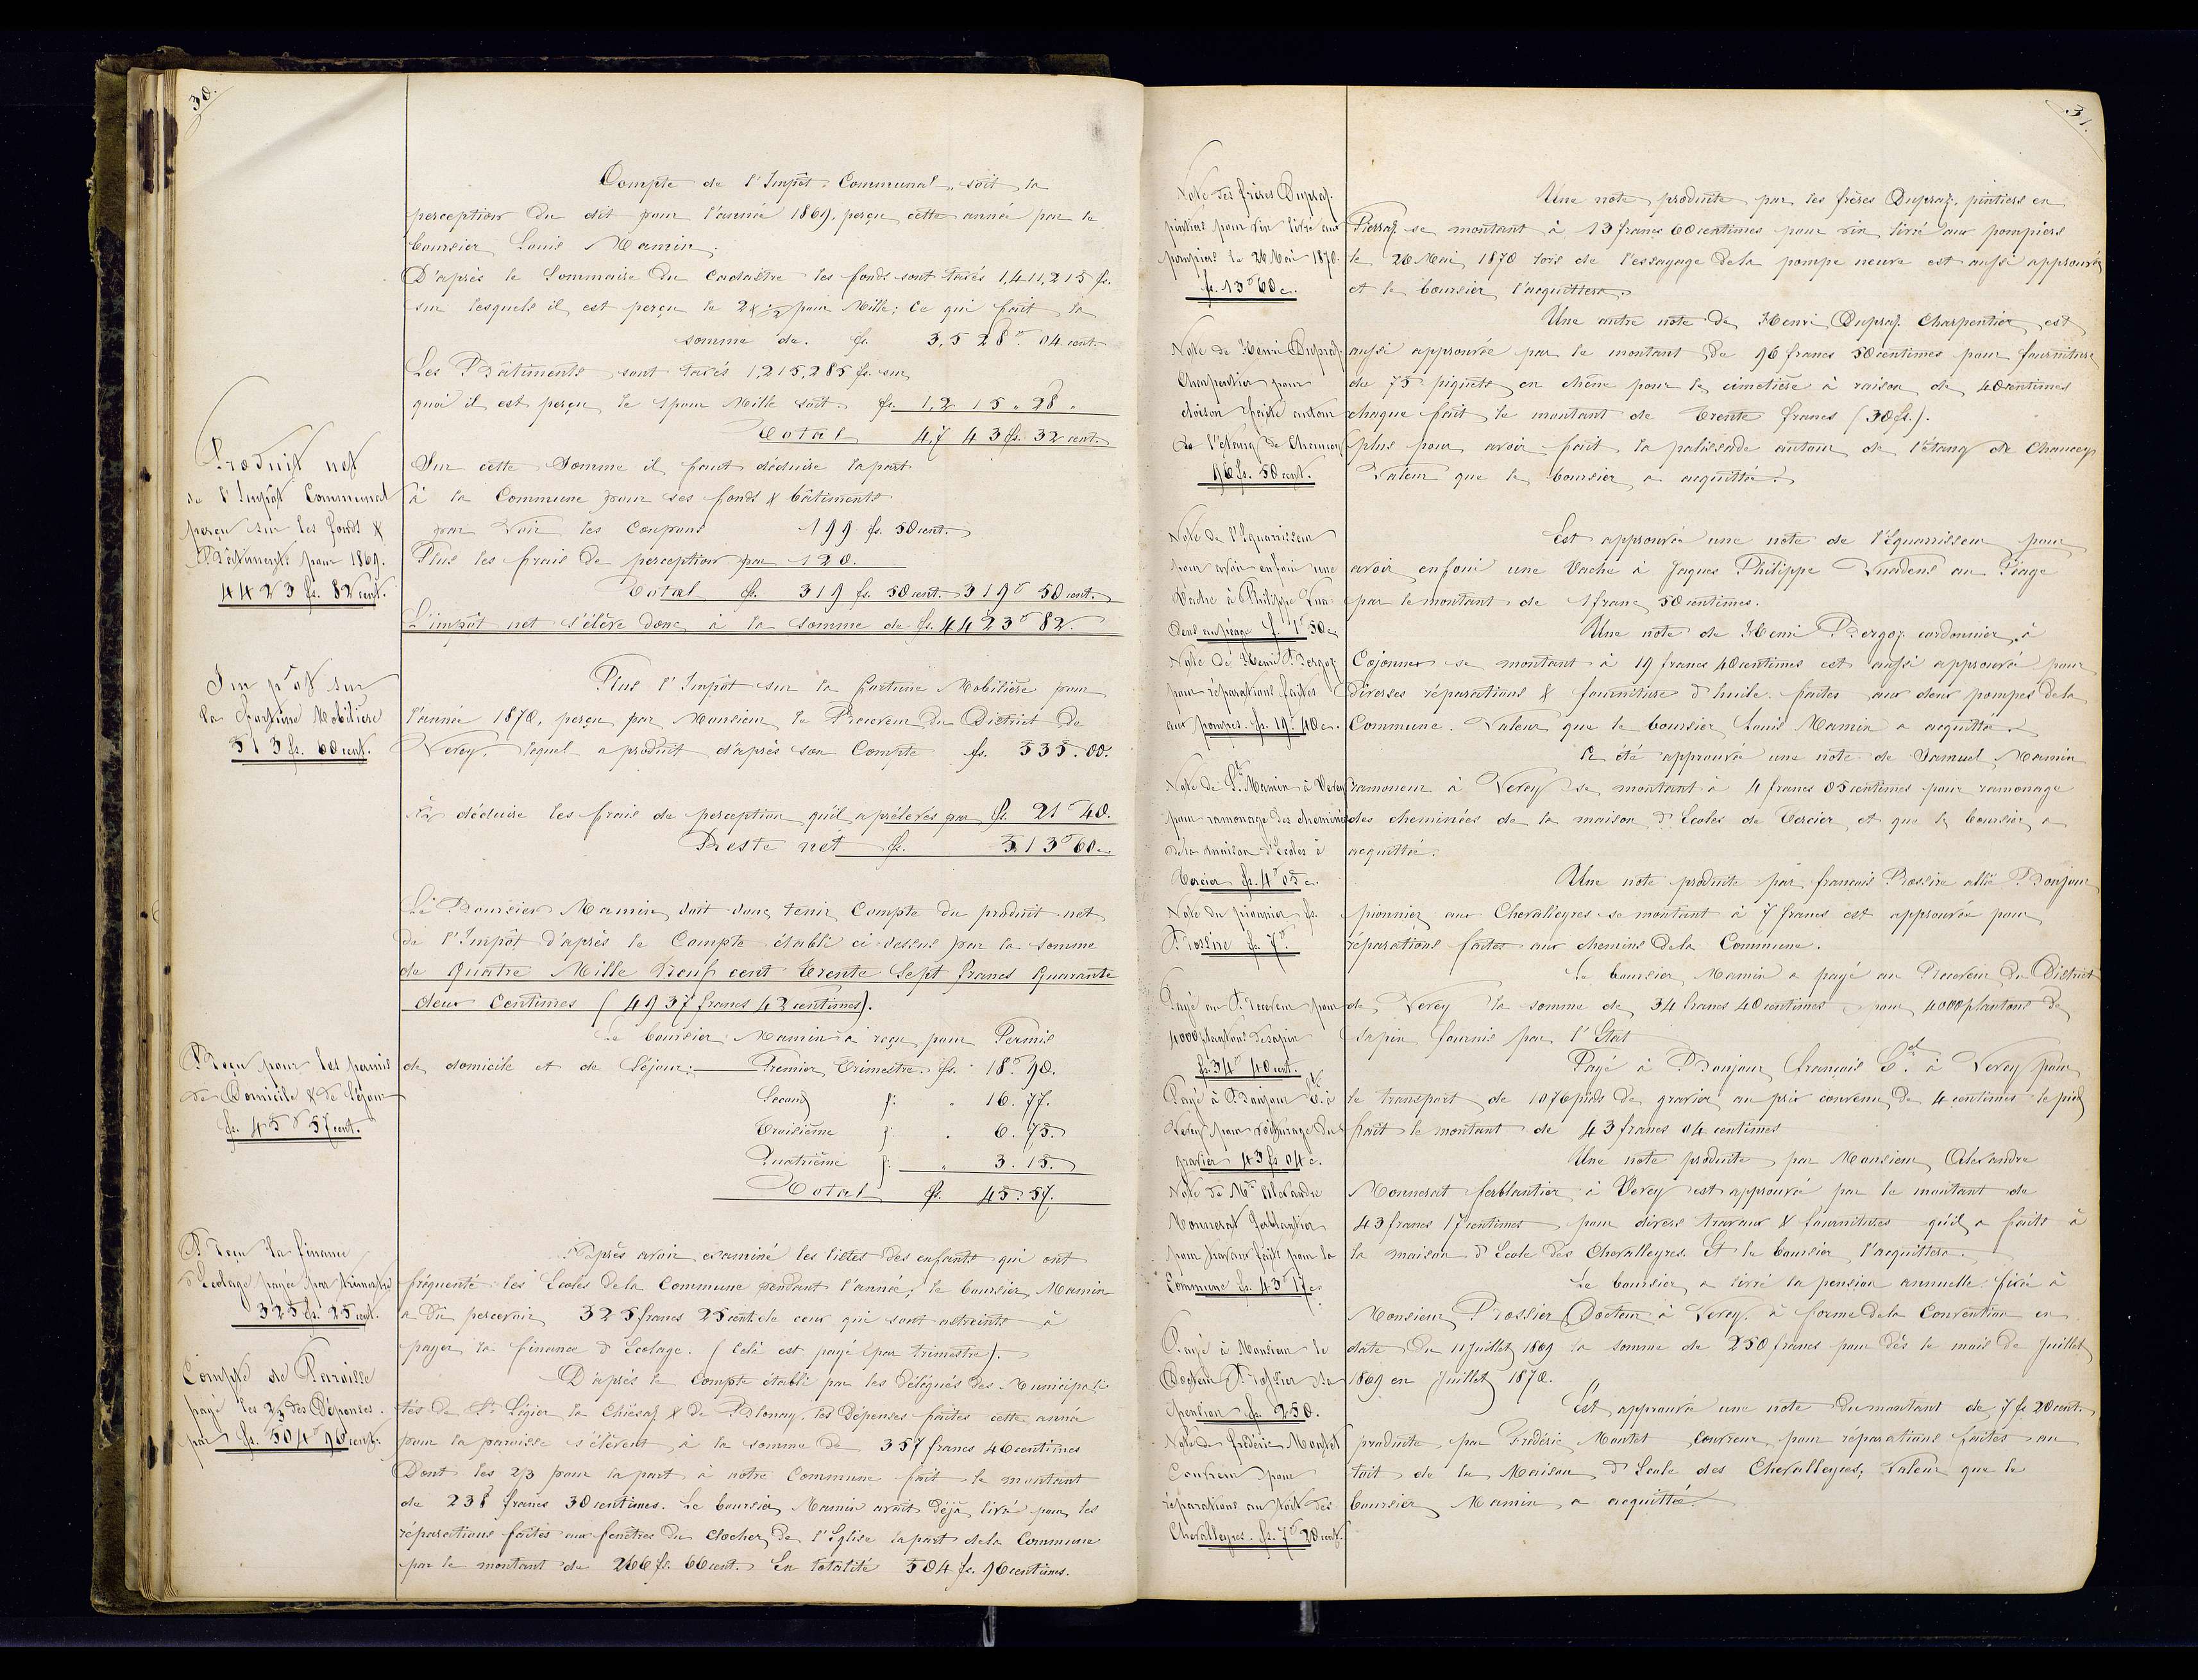 30.
Compte de l'Impôt Communal, soit la
perception du dit pour l'année 1869, perçu cette année par le
boursier Louis Mamin.
D'après le Sommaire du Cadastre les fonds sont taxés 1,411,215 fs.
sur lesquels il est perçu le 2 & 1/2 pour Mille; Ce qui fait la
somme de. fs. 3,528" 04 cent.
Les Bâtiments sont taxés 1,215,285 fs. sur
quoi il est perçu le 1 pour Mille soit. fs. 1,215 " 28 "
Total 4,743 fs. 32 cent.
Produit net
de l'Impôt Communal
perçu sur les fonds &
Bâtiments pour 1869.
4423 fs. 82 cent.
Sur cette Somme il faut déduire la part
à la Commune pour ses fonds & bâtiments
par Voir les Coupons 199 fs. 50 cent.
Plus les frais de perception par 120.
Total fs. 319 fs. 50 cent. 319" 50 cent.
L'impôt net s'élève donc à la somme de fs. 4423" 82.
Impôt sur
la fortune Mobilière
513 fs. 60 cent.
Plus l'Impôt sur la fortune Mobilière pour
l'année 1870, perçu par Monsieur le Receveur du District de
Vevey, lequel a produit d'après son Compte fs. 535.00.
à déduire les frais de perception qu'il a prélevés par fs. 21" 40.
Reste net fs. 513" 60 c.
Le Boursier Mamin doit donc tenir Compte du produit net
de l'Impôt d'après le Compte établi ci-dessus par la somme
de Quatre Mille Neuf cent Trente Sept francs Quarante
deux Centimes (4937 francs 42 centimes).
Reçu pour les permis
de Domicile & de Séjour
fs. 45" 57 cent.
Le boursier Mamin a reçu pour Permis
de domicile et de Séjour: Premier Trimestre. fs. 18" 90.
Second f: " 16. 77.
Troisième f: " 6. 75.
Quatrième f: " 3. 15.
Total fs. 45. 57.
Reçu la finance
d'Ecolage payée par trimestres
325 fs. 25 cent.
D'après avoir examiné les listes des enfants qui ont
fréquenté les Ecoles de la Commune pendant l'année, le boursier Mamin
a dû percevoir 325 francs 25 cent. de ceux qui sont astreints à
payer la finance d'Ecolage. (Celà est payé par trimestre).
Compte de Paroisse
payé les 2/3 des Dépenses.
par fs. 504" 96 cent.
D'après le Compte établi par les délégués des Municipali-
tés de St. Légier la Chiésaz & de Blonay, les Dépenses faites cette année
pour la paroisse s'élèvent à la somme de 357 francs 46 centimes
Dont les 2/3 pour la part à notre Commune fait le montant
de 238 francs 30 centimes. Le boursier Mamin avait déjà livré pour les
réparations faites aux fenêtres du Clocher de l'Eglise la part de la Commune
par le montant de 266 fs. 66 cent. En totalité 504 fs. 96 centimes.
31.
Note des frères Dupraz
pintiers pour vin livré aux
pompiers le 26 Mai 1870.
fs. 13" 60 c.
Une note produite par les frères Dupraz, pintiers en
Pierraz se montant à 13 francs 60 centimes pour vin livré aux pompiers
le 26 Mai 1870 lors de l'essayage de la pompe neuve est aussi approuvée
et le boursier l'acquittera.
Note de Henri Dupraz
Charpentier pour
cloison faite autour
de l'étang de Chaucey
96 fs. 50 cent.
Une autre note de Henri Dupraz Charpentier est
aussi approuvée par le montant de 96 francs 50 centimes pour fourniture
de 75 piquets en chêne pour le cimetière à raison de 40 centimes
chaque fait le montant de trente francs (30 fs.).
plus pour avoir fait la palissade autour de l'étang de Chaucey
Valeur que le boursier a acquittée.
Note de l'Equarrisseur
pour avoir enfoui une
Vache à Philippe Vua-
dens au péage f. 1" 50 c.
Est approuvée une note de l'Equarrisseur pour
avoir enfoui une Vache à Jaques Philippe Vuadens au Péage
par le montant de 1 franc 50 centimes.
Note de Henri Bergoz
pour réparations faites
aux pompes. fs. 19" 40 c.
Une note de Henri Bergoz cordonnier, à
Cojonnex se montant à 19 francs 40 centimes est aussi approuvée pour
diverses réparations & fourniture d'huile faites aux deux pompes de la
Commune. Valeur que le boursier Louis Mamin a acquittée.
Note de Sl. Mamin à Vevey
pour ramonage des cheminées
de la maison d'Ecoles à
Tercier fs. 4" 05 c.
A été approuvée une note de Samuel Mamin
ramoneur à Vevey se montant à 4 francs 05 centimes pour ramonage
des cheminées de la maison d'Ecoles de Tercier et que le boursier a
acquittée.
Note du pionnier fs.
Rossire fs. 7"
Une note produite par françois Rossire allié Bonjour
pionnier aux Chevalleyres se montant à 7 francs est approuvée pour
réparations faites aux chemins de la Commune.
Payé au Receveur pour
4000 plantons de sapin
fs. 34" 40 cent.
Le boursier Mamin a payé au Receveur du District
de Vevey la somme de 34 francs 40 centimes pour 4000 plantons de
sapin fournis par l'Etat
Payé à Bonjour à
Vevey pour voiturage du
gravier 43 fs 04 c.
Payé à Bonjour François à Vevey pour
le transport de 1076 pieds de gravier au prix convenu de 4 centimes le pied
fait le montant de 43 francs 04 centimes
Note de Mr. Alexandre
Monnerat ferblantier
pour travaux faits pour la
Commune fs. 43" 17 c.
Une note produite par Monsieur Alexandre
Monnerat ferblantier à Vevey est approuvée par le montant de
43 francs 17 centimes pour divers travaux & fournitures qu'il a faits à
la maison d'Ecole des Chevalleyres. Et le boursier l'acquittera.
Payé à Monsieur le
Docteur Rossier sa
pension fs. 250.
Le boursier a livré la pension annuelle fixée à
Monsieur Rossier Docteur à Vevey, à forme de la Convention en
date du 11 Juillet 1869 la somme de 250 francs pour dès le mois de Juillet
1869 en Juillet 1870.
Note de Frédéric Montet
Couvreur pour
réparations au toit des
Chevalleyres. fs. 7" 20 cent.
Est approuvée une note du montant de 7 fs 20 cent.
produite par Frédéric Montet, couvreur, pour réparations faites au
toit de la Maison d'Ecole des Chevalleyres, Valeur que le
boursier Mamin a acquittée.